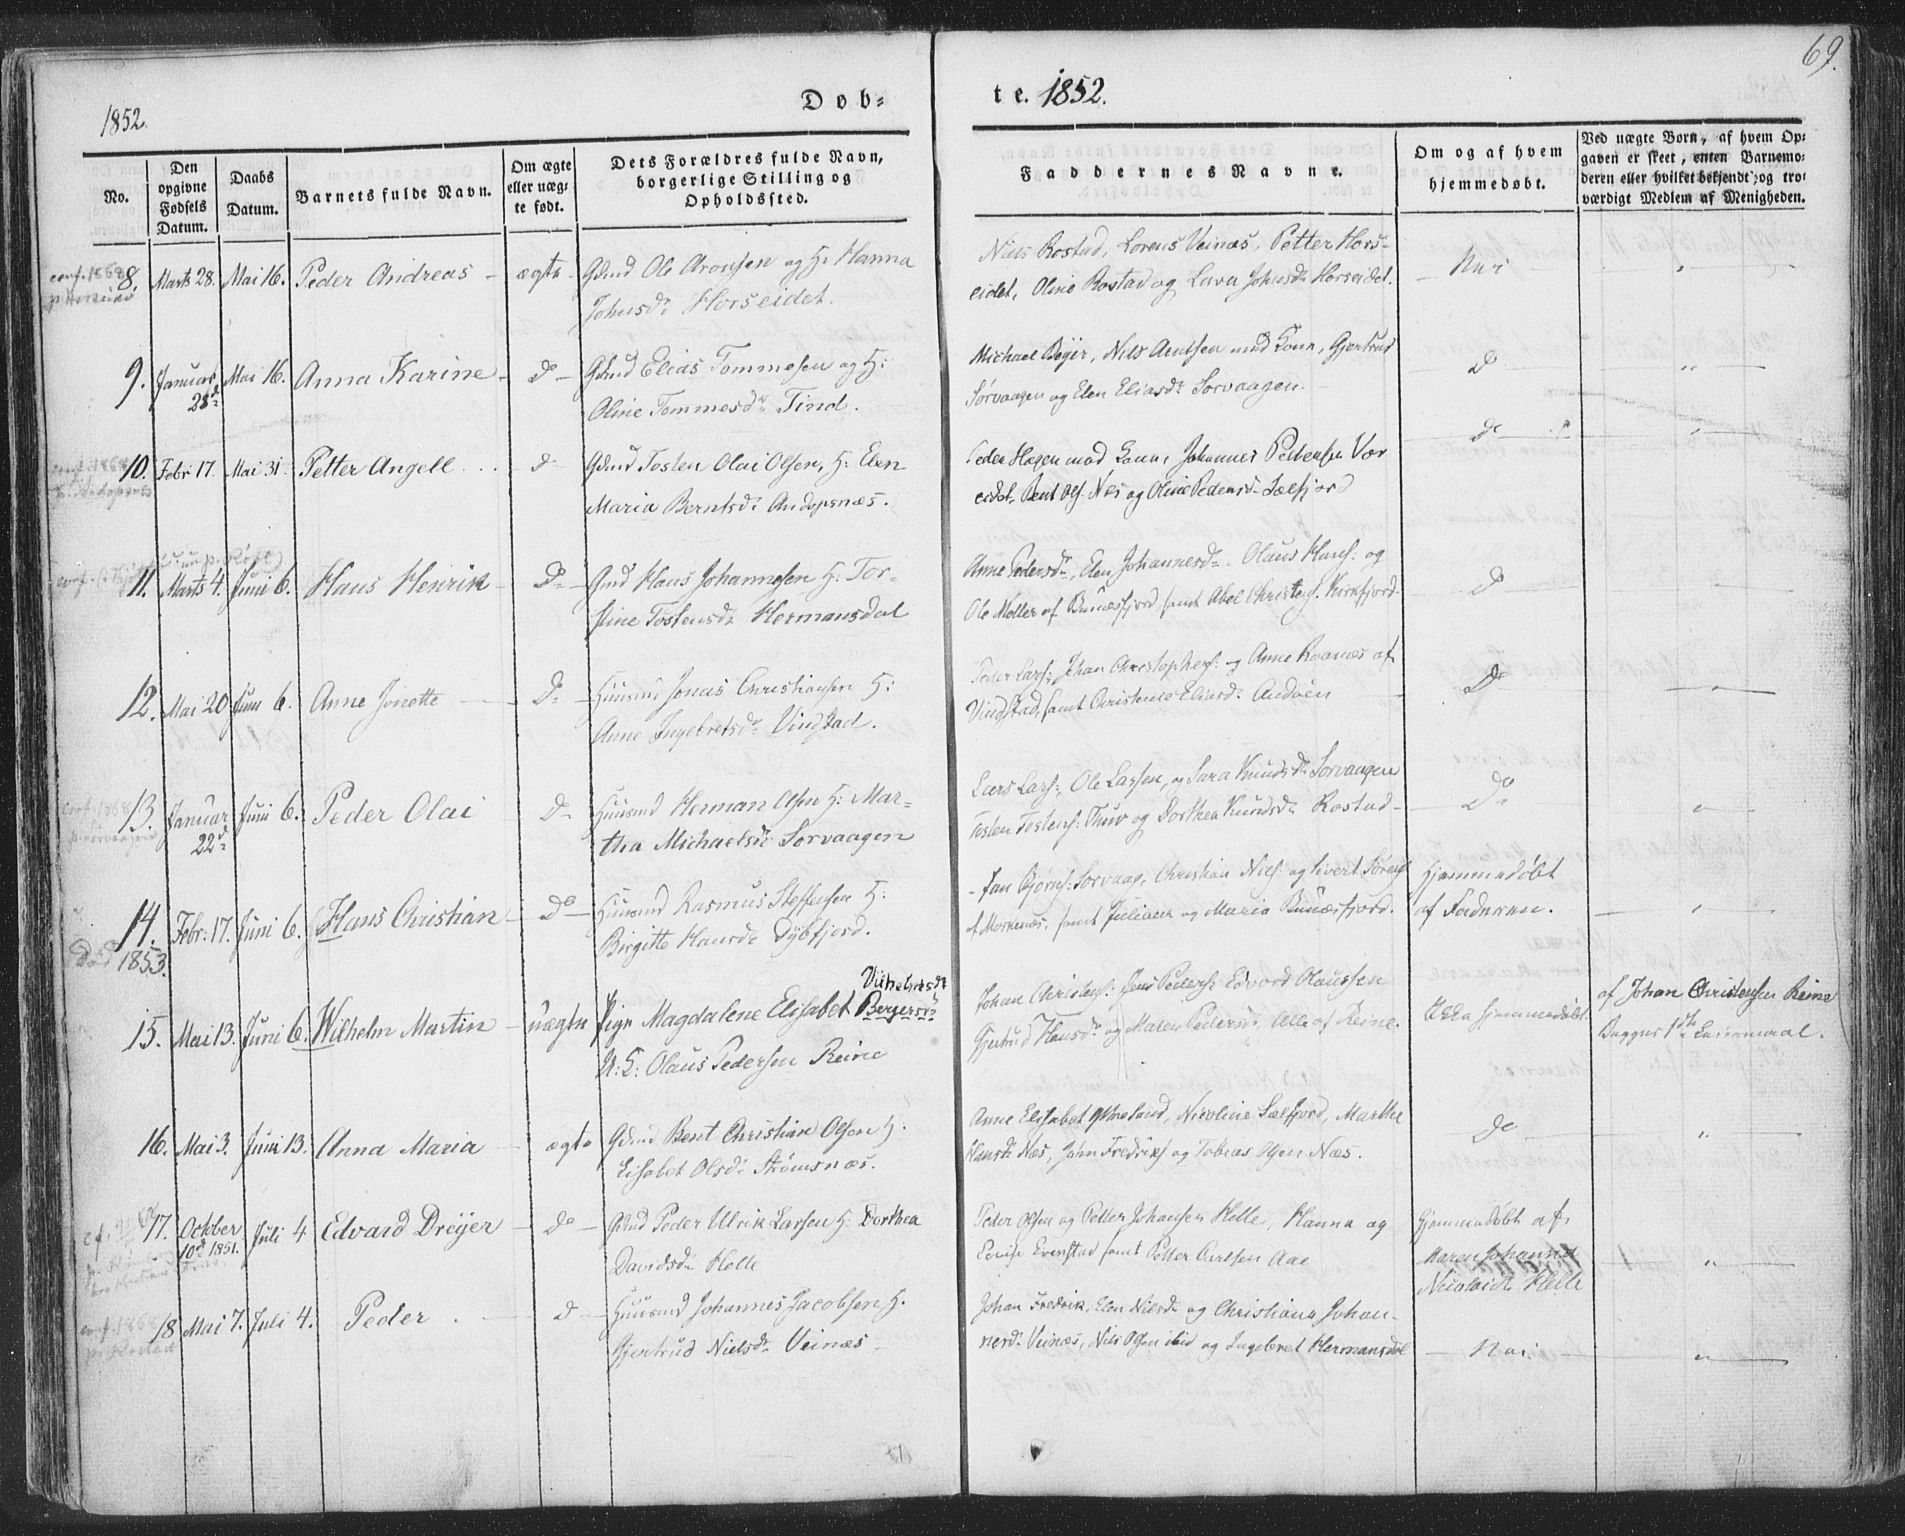 69.
1852.
Døb=
te. 1852.
No.
Den opgivne Fødsels Datum.
Daabs Datum.
Barnets fulde Navn.
Om ægte eller uæg= te født.
Dets Forældres fulde Navn, borgerlige Stilling og Opholdssted.
Faddernes Navne.
Om og af hvem hjemmedøbt.
Ved uægte Børn, af hvem Op= gaven er skeet, enten Barnemo= deren eller hvilket bekjendt og tro= værdigt Medlem af Menigheden.
conf. 1868
8. Marts 28. Mai 16. Peder Andreas - ægte - Gdmd Ole Aronsen og H: Hanna
Johnsdr Horseidet.
Niels Rostad, Lorens Veinæs, Petter Hors-
eidet, Oline Rostad og Lava Johnsdr Horseidet.
Nei
9. Januar 28d Mai 16. Anna Karine - Do - Gdmd Elias Tommesen og H:
Oline Tommesdr Tind.
Michael Beyer, Nils Arntsen med Kone, Gjertrud
Sørvaagen og Elen Eliasdr Sørvaagen.
Do
10. Febr: 17. Mai 31. Petter Angell . . . Do Gdmd Tosten Olai Olsen, H: Elen
Maria Berntsdr Andopsnæs.
Peder Hagen med Kone, Johannes Pettersen Vor
eidet, Bent Ols. Næs og Oline Pedersdr Sælfjord
Do
11. Marts 4. Juni 6. Hans Henrik - Do - Gmd Hans Johannesen H: Tor-
stine Tostensdr Hermansdal
Anne Pedersdr, Elen Johannesdr. Olaus Hans: og
Ole Møller af Bunæsfjord, samt Abel Christens. Kirkfjord
Do
12. Mai 20 Juni 6. Anne Jonette - Do - Huusmd Jonas Christiansen H:
Anne Ingebretsdr Vindstad.
Peder Lars:, Johan Christophers: og Anne Roanæs af
Vindstad, samt Christense Eliasdr Andøen
Do
13. Januar 22d Juni 6. Peder Olai Do Huusmd Herman Olsen H: Mar-
tha Michaelsdr Sørvaagen
Lars Lars:, Ole Larsen, og Sara Knudsdr Sørvaagen
Tosten Tostens: Thuv og Dorthea Knudsdr Rostad -
Do
14. Febr: 17. Juni 6. Hans Christian - Do - Huusmd Rasmus Steffensen H:
Død 1853.
Birgitte Hansdr Dybfjord.
Jan Bjørns: Sørvaag, Christian Niels: og Sivert Sørens:
af Moskenæs, samt Juliane og Maria Bunæsfjord.
Hjemmedøbt
af Faderen.
15. Mai 13. Juni 6. Wilhelm Martin - uægte Pige Magdalene Elisabet Bergersdr
Vilhelmsdr
U: F: Olaus Pedersen Reine
Johan Christens: Jens Peders: Edvard Olaussen
Gjertrud Hansdr og Maren Pedersdr, Alle af Reine.
Ikke hjemmedøbt.
af Johan Christensen Reine
Begges 1ste Leiermaal.
16. Mai 3. Juni 13. Anna Maria - ægte Gdmd Bent Christian Olsen H.
Elisabet Olsdr Strømsnæs.
Anne Elisabet, Nicoline Sælfjord, Marthe
Hansdr Næs, John Fredriks: og Tobias Olsen Næs.
Do
17. Octber 10d 1851. Juli 4 Edvard Dreyer - Do - Gdmd Peder Ulrik Larsen H: Dorthea
Davidsdr Helle
Peder Olsen og Petter Johansen Helle, Hanna og
Evenstad samt Petter Carlsen Aae
Hjemmedøbt af
Maren Johanna
Nicolaidr Helle
18 Mai 7. Juli 4. Peder . Do - Huusmd Johannes Jacobsen H.
Gjertrud Nielsdr Veinæs.
Johan Fredrik, Elen Nilsdr og Christiana Johan-
nesdr Veinæs, Nils Olsen ibid og Ingebret Hermansdal
- Nei.